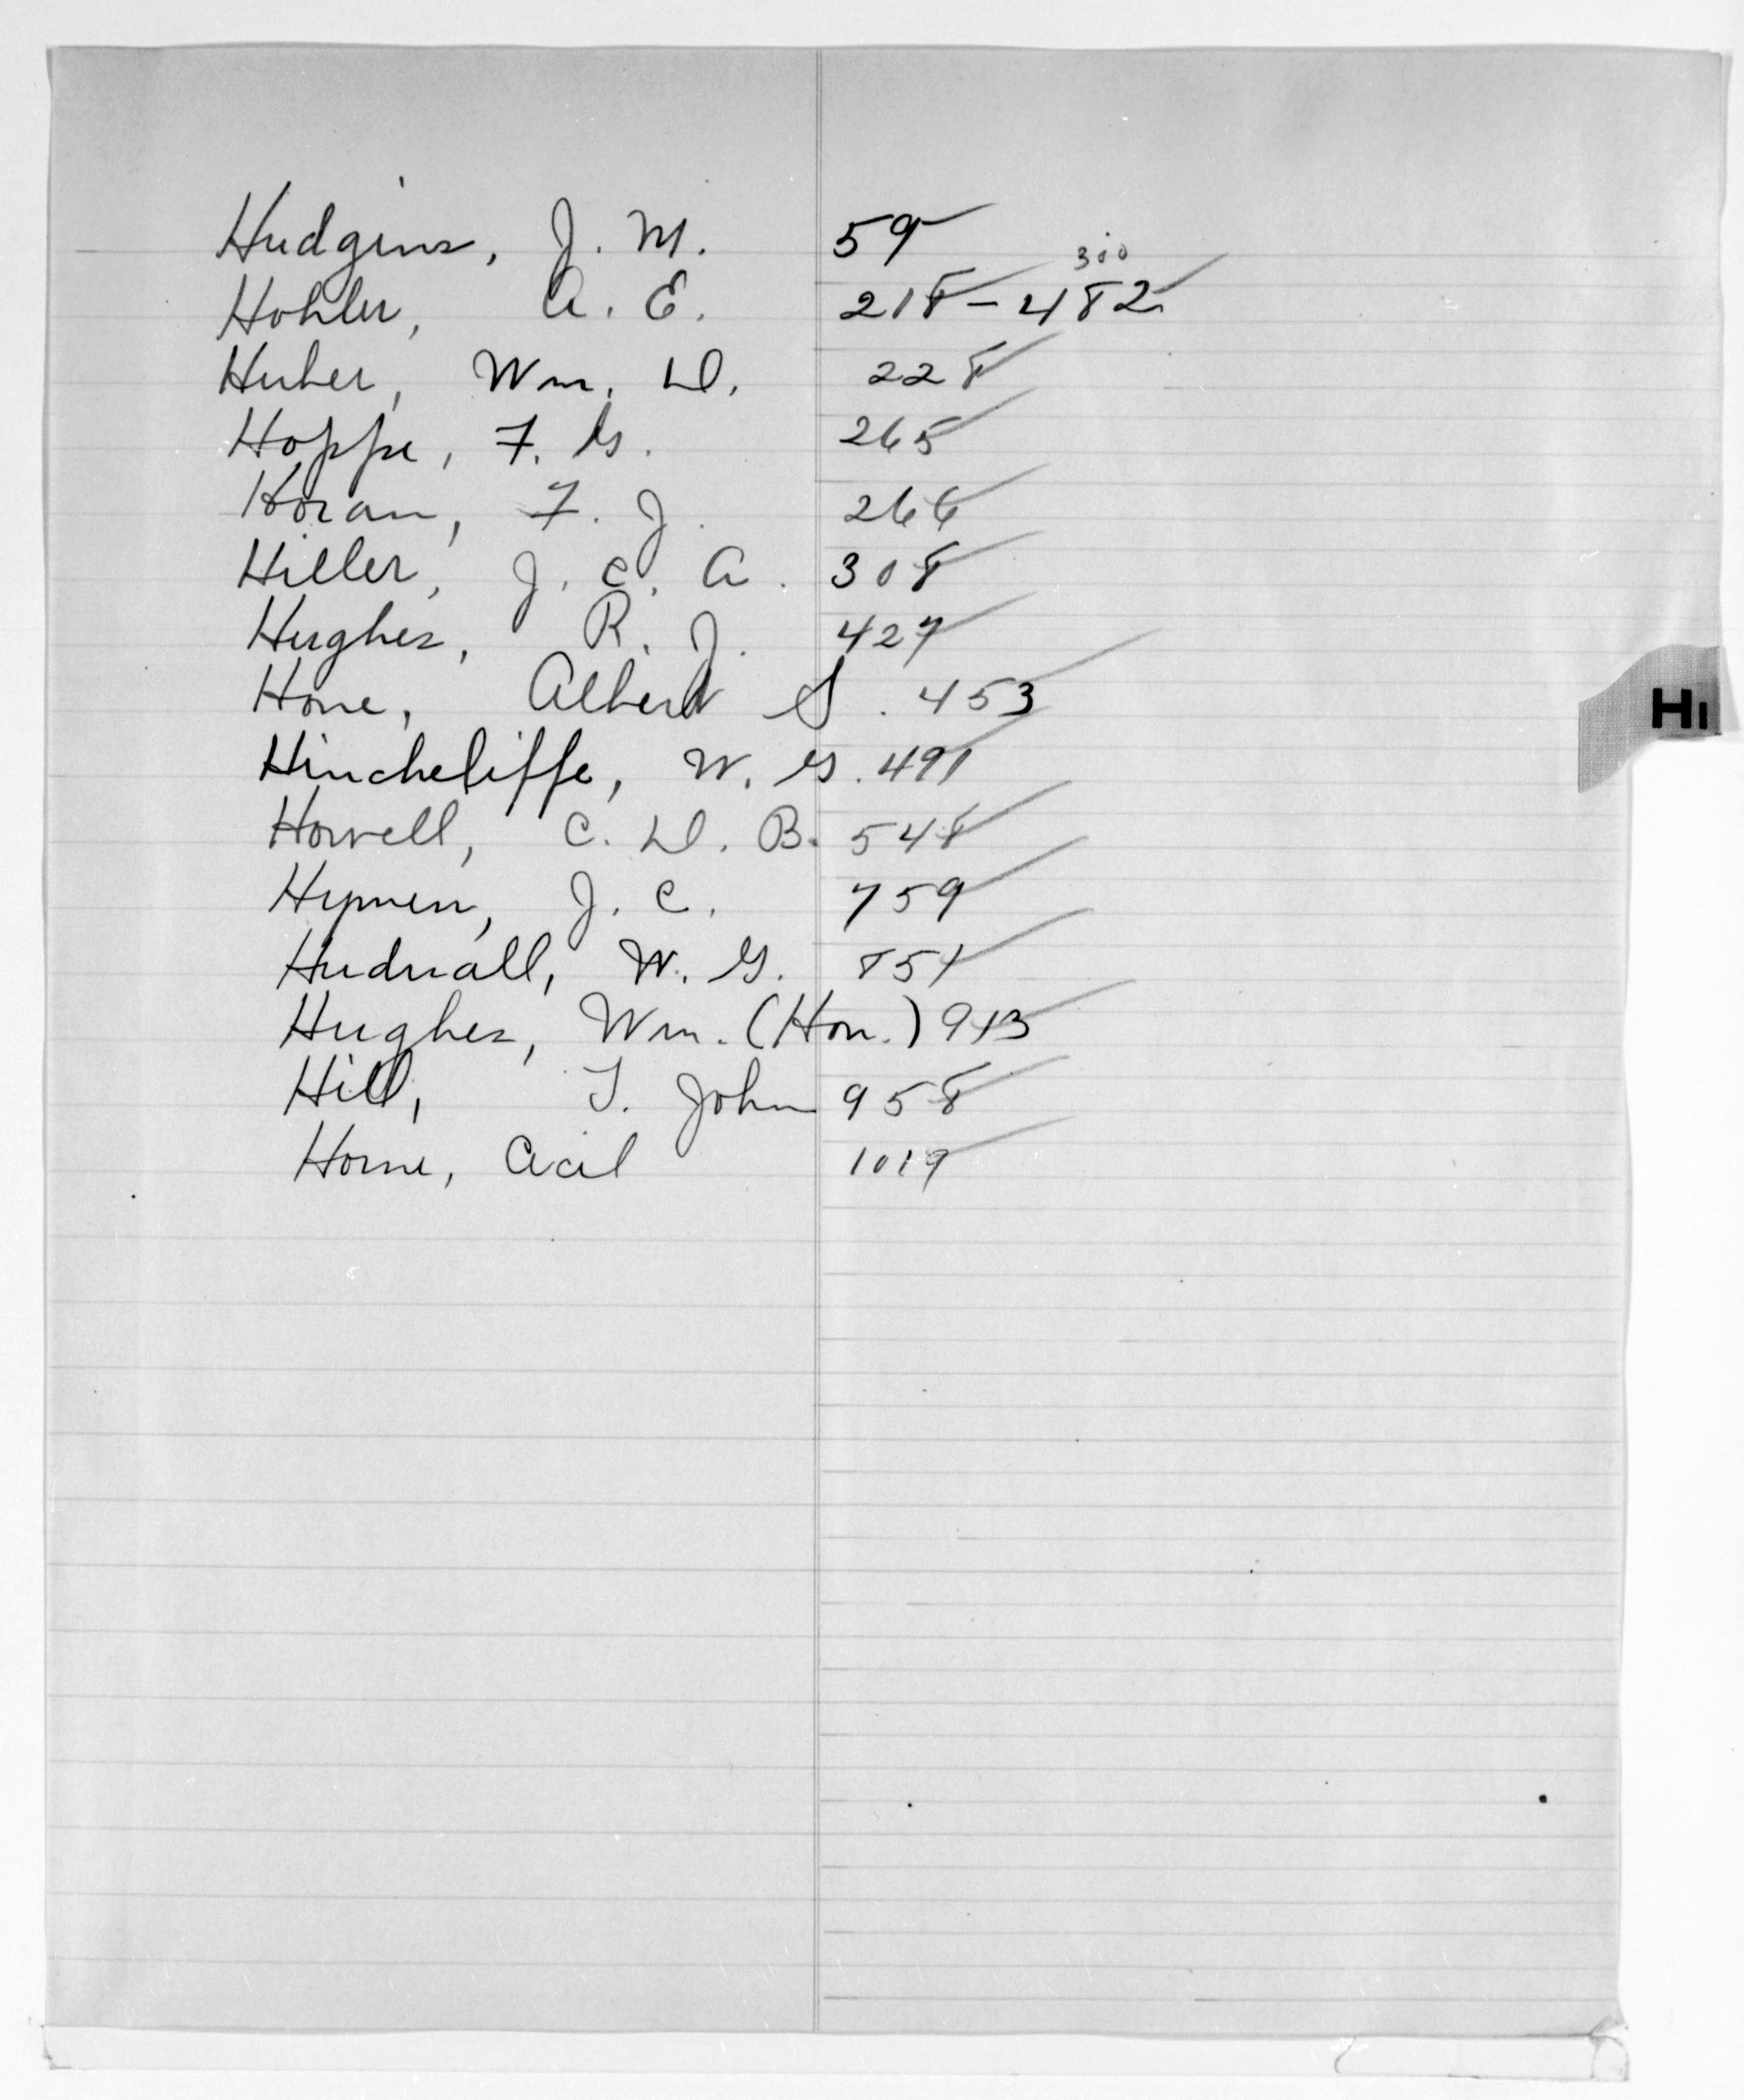 Hudgins, J. M. 59
300
Hohler, A. E. 218 - 482
Huber, Wm. D. 228
Hoppe, F. G. 265
Horan, F. J. 266
Hiller, J. C. A. 308
Hughes, R. J. 427
Hone, Albert S. 453
Hincheliffe, W. G. 491
Howell, C. D. B. 548
Hymen, J. C. 759
Hudnall, W. G. 851
Hughes, Wm. (Hon.) 913
Hill, T. John 958
Horne, Cecil 1019
HI